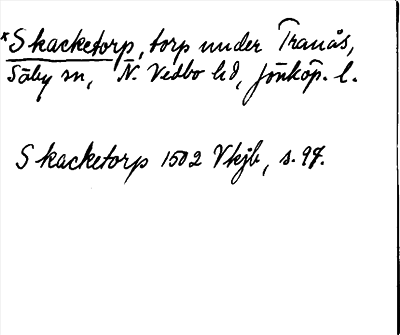 *Skacketorp, torp under Tranås,
Säby sn, N. Vedbo hd, Jönköp. l.
Skacketorp 1502 Vkjb, s. 97.